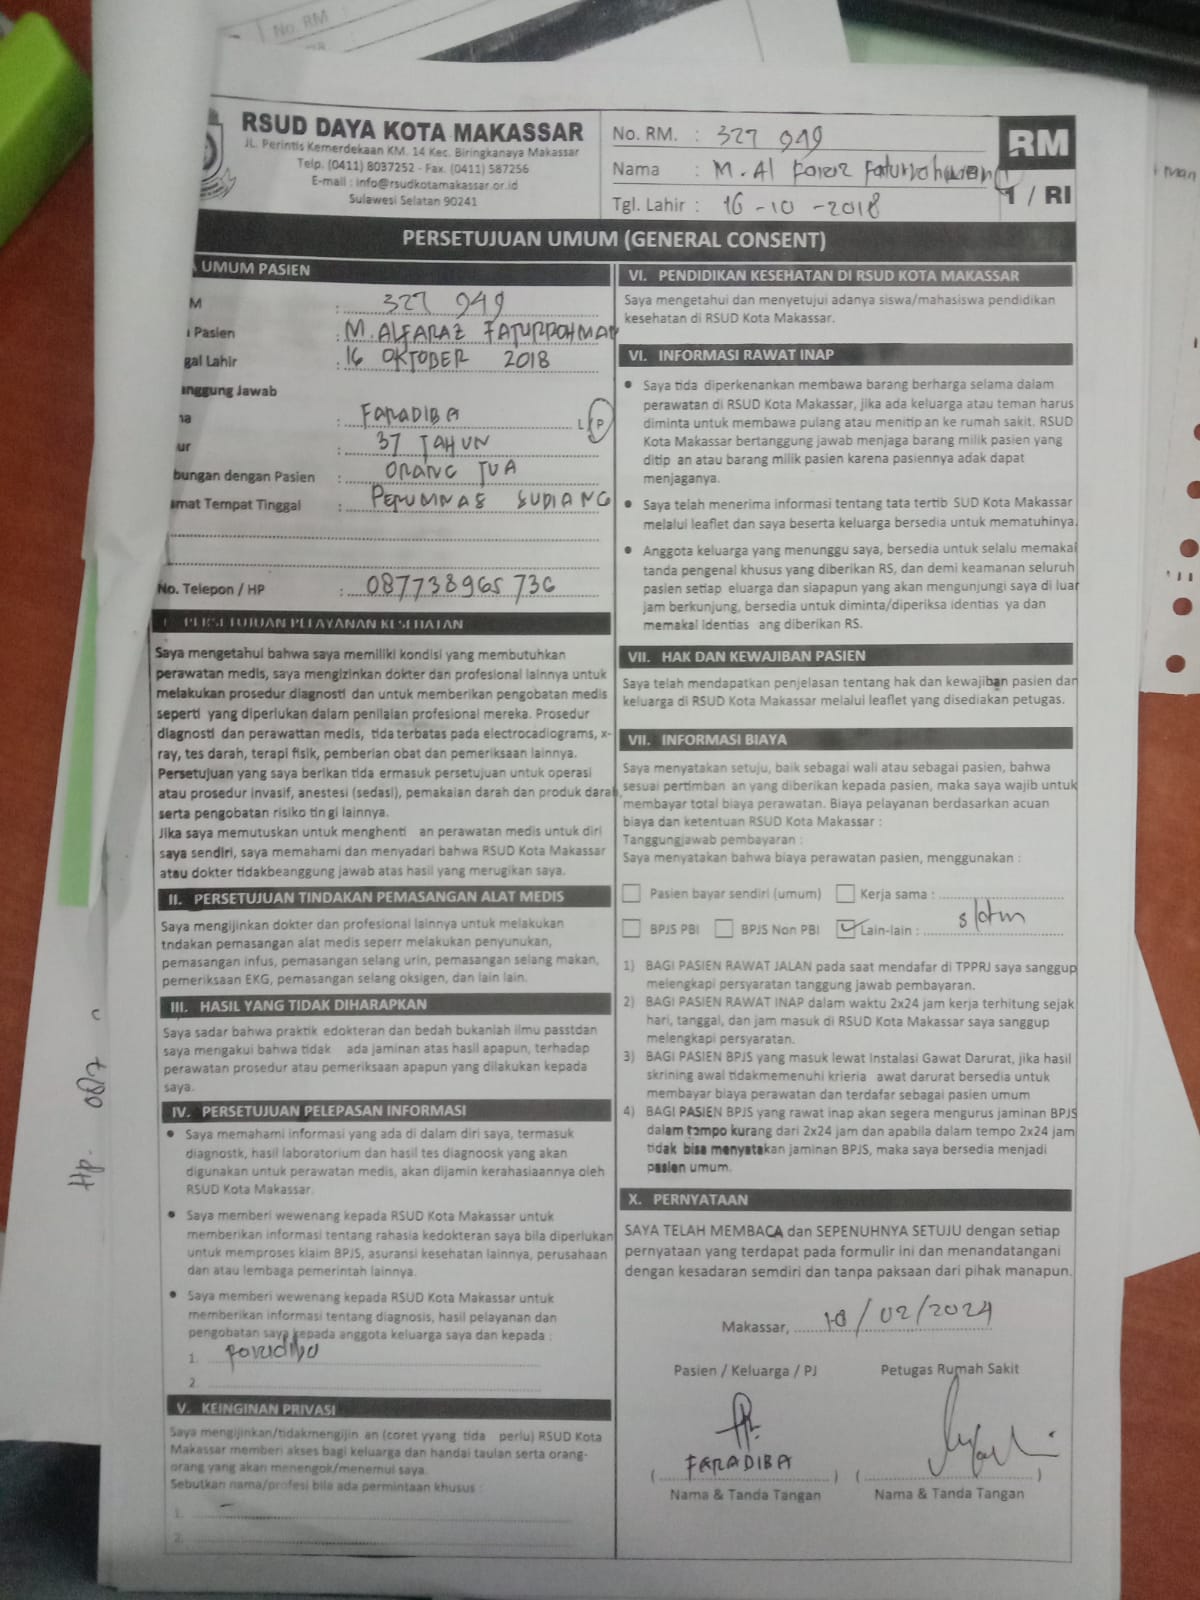 No. RM
RSUD DAYA KOTA MAKASSAR
JL. Perintis Kemerdekaan KM. 14 Kec. Biringkanaya Makassar
Telp. (0411) 8037252 - Fax. (0411) 587256
E-mail : info@rsudkotamakassar.or.id
Sulawesi Selatan 90241
No. RM. : 327 949
Nama : M. Al
Tgl. Lahir : 16 - 10 - 2018
RM
1 / RI
PERSETUJUAN UMUM (GENERAL CONSENT)
UMUM PASIEN
M : 327 949
Pasien : M. ALFARAZ FATURROHMAN
gal Lahir : 16 OKTOBER 2018
anggung Jawab
na : FARADIBA L P
ur : 37 TAHUN
bungan dengan Pasien : ORANG TUA
mat Tempat Tinggal : PERUMNAS SUDIANG
No. Telepon / HP : 087738965736
I. PERSETUJUAN PELAYANAN KESEHATAN
Saya mengetahui bahwa saya memiliki kondisi yang membutuhkan
perawatan medis, saya mengizinkan dokter dan profesional lainnya untuk
melakukan prosedur diagnosti dan untuk memberikan pengobatan medis
seperti yang diperlukan dalam penilaian profesional mereka. Prosedur
diagnosti dan perawattan medis, tida terbatas pada electrocadiograms, x-
ray, tes darah, terapi fisik, pemberian obat dan pemeriksaan lainnya.
Persetujuan yang saya berikan tida ermasuk persetujuan untuk operasi
atau prosedur invasif, anestesi (sedasi), pemakaian darah dan produk darah,
serta pengobatan risiko tin gi lainnya.
Jika saya memutuskan untuk menghenti an perawatan medis untuk diri
saya sendiri, saya memahami dan menyadari bahwa RSUD Kota Makassar
atau dokter tidakbeanggung jawab atas hasil yang merugikan saya.
II. PERSETUJUAN TINDAKAN PEMASANGAN ALAT MEDIS
Saya mengijinkan dokter dan profesional lainnya untuk melakukan
tndakan pemasangan alat medis seperr melakukan penyunukan,
pemasangan infus, pemasangan selang urin, pemasangan selang makan,
pemeriksaan EKG, pemasangan selang oksigen, dan lain lain.
III. HASIL YANG TIDAK DIHARAPKAN
Saya sadar bahwa praktik edokteran dan bedah bukanlah ilmu passtdan
saya mengakui bahwa tidak ada jaminan atas hasil apapun, terhadap
perawatan prosedur atau pemeriksaan apapun yang dilakukan kepada
saya.
IV. PERSETUJUAN PELEPASAN INFORMASI
• Saya memahami informasi yang ada di dalam diri saya, termasuk
diagnostk, hasil laboratorium dan hasil tes diagnoosk yang akan
digunakan untuk perawatan medis, akan dijamin kerahasiaannya oleh
RSUD Kota Makassar.
• Saya memberi wewenang kepada RSUD Kota Makassar untuk
memberikan informasi tentang rahasia kedokteran saya bila diperlukan
untuk memproses klaim BPJS, asuransi kesehatan lainnya, perusahaan
dan atau lembaga pemerintah lainnya.
• Saya memberi wewenang kepada RSUD Kota Makassar untuk
memberikan informasi tentang diagnosis, hasil pelayanan dan
pengobatan saya kepada anggota keluarga saya dan kepada :
1. Faradiba
2.
V. KEINGINAN PRIVASI
Saya mengijinkan/tidakmengijin an (coret yyang tida perlu) RSUD Kota
Makassar memberi akses bagi keluarga dan handai taulan serta orang-
orang yang akan menengok/menemui saya.
Sebutkan nama/profesi bila ada permintaan khusus :
1. -
2.
VI. PENDIDIKAN KESEHATAN DI RSUD KOTA MAKASSAR
Saya mengetahui dan menyetujui adanya siswa/mahasiswa pendidikan
kesehatan di RSUD Kota Makassar.
VI. INFORMASI RAWAT INAP
• Saya tida diperkenankan membawa barang berharga selama dalam
perawatan di RSUD Kota Makassar, jika ada keluarga atau teman harus
diminta untuk membawa pulang atau menitip an ke rumah sakit. RSUD
Kota Makassar bertanggung jawab menjaga barang milik pasien yang
ditip an atau barang milik pasien karena pasiennya adak dapat
menjaganya.
• Saya telah menerima informasi tentang tata tertib SUD Kota Makassar
melalui leaflet dan saya beserta keluarga bersedia untuk mematuhinya.
• Anggota keluarga yang menunggu saya, bersedia untuk selalu memakai
tanda pengenal khusus yang diberikan RS, dan demi keamanan seluruh
pasien setiap eluarga dan siapapun yang akan mengunjungi saya di luar
jam berkunjung, bersedia untuk diminta/diperiksa identias ya dan
memakai Identias ang diberikan RS.
VII. HAK DAN KEWAJIBAN PASIEN
Saya telah mendapatkan penjelasan tentang hak dan kewajiban pasien dan
keluarga di RSUD Kota Makassar melalui leaflet yang disediakan petugas.
VII. INFORMASI BIAYA
Saya menyatakan setuju, baik sebagai wali atau sebagai pasien, bahwa
sesuai pertimban an yang diberikan kepada pasien, maka saya wajib untuk
membayar total biaya perawatan. Biaya pelayanan berdasarkan acuan
biaya dan ketentuan RSUD Kota Makassar :
Tanggungjawab pembayaran :
Saya menyatakan bahwa biaya perawatan pasien, menggunakan :
Pasien bayar sendiri (umum) Kerja sama :
BPJS PBI BPJS Non PBI Lain-lain :
1) BAGI PASIEN RAWAT JALAN pada saat mendafar di TPPRJ saya sanggup
melengkapi persyaratan tanggung jawab pembayaran.
2) BAGI PASIEN RAWAT INAP dalam waktu 2x24 jam kerja terhitung sejak
hari, tanggal, dan jam masuk di RSUD Kota Makassar saya sanggup
melengkapi persyaratan.
3) BAGI PASIEN BPJS yang masuk lewat Instalasi Gawat Darurat, jika hasil
skrining awal tidakmemenuhi krieria awat darurat bersedia untuk
membayar biaya perawatan dan terdafar sebagai pasien umum
4) BAGI PASIEN BPJS yang rawat inap akan segera mengurus jaminan BPJS
dalam tempo kurang dari 2x24 jam dan apabila dalam tempo 2x24 jam
tidak bisa menyatakan jaminan BPJS, maka saya bersedia menjadi
pasien umum.
X. PERNYATAAN
SAYA TELAH MEMBACA dan SEPENUHNYA SETUJU dengan setiap
pernyataan yang terdapat pada formulir ini dan menandatangani
dengan kesadaran semdiri dan tanpa paksaan dari pihak manapun.
Makassar, 10/02/2024
Pasien / Keluarga / PJ Petugas Rumah Sakit
(FARADIBA) ( )
Nama & Tanda Tangan Nama & Tanda Tangan
Hp. 087